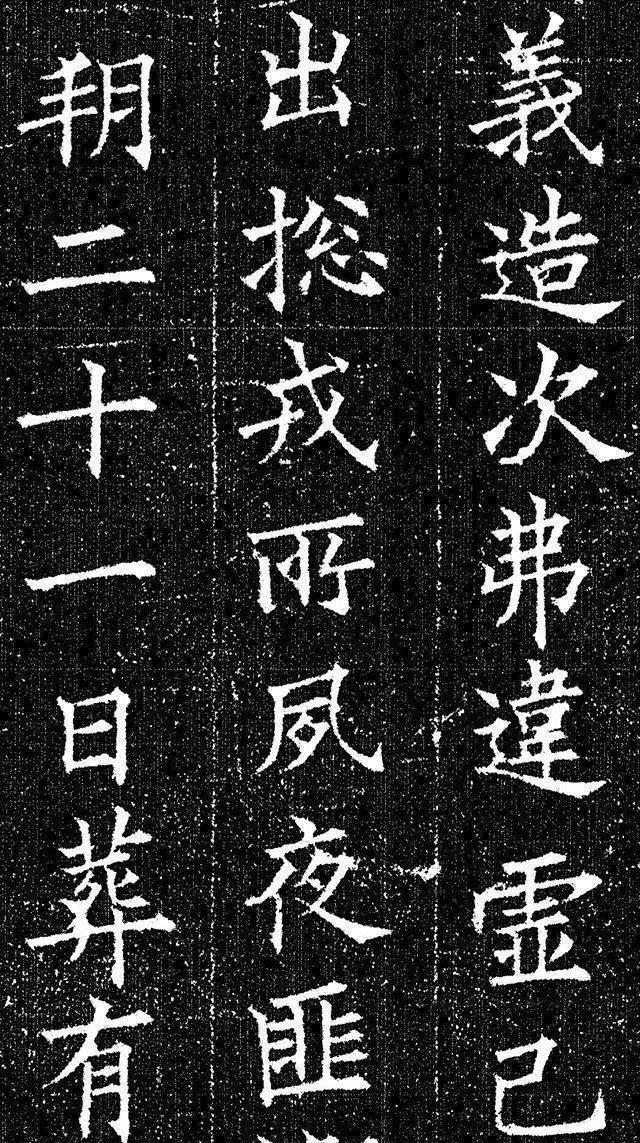 義造次弗違虛己
出揔戎所夙夜匪
朔二十一日葬有